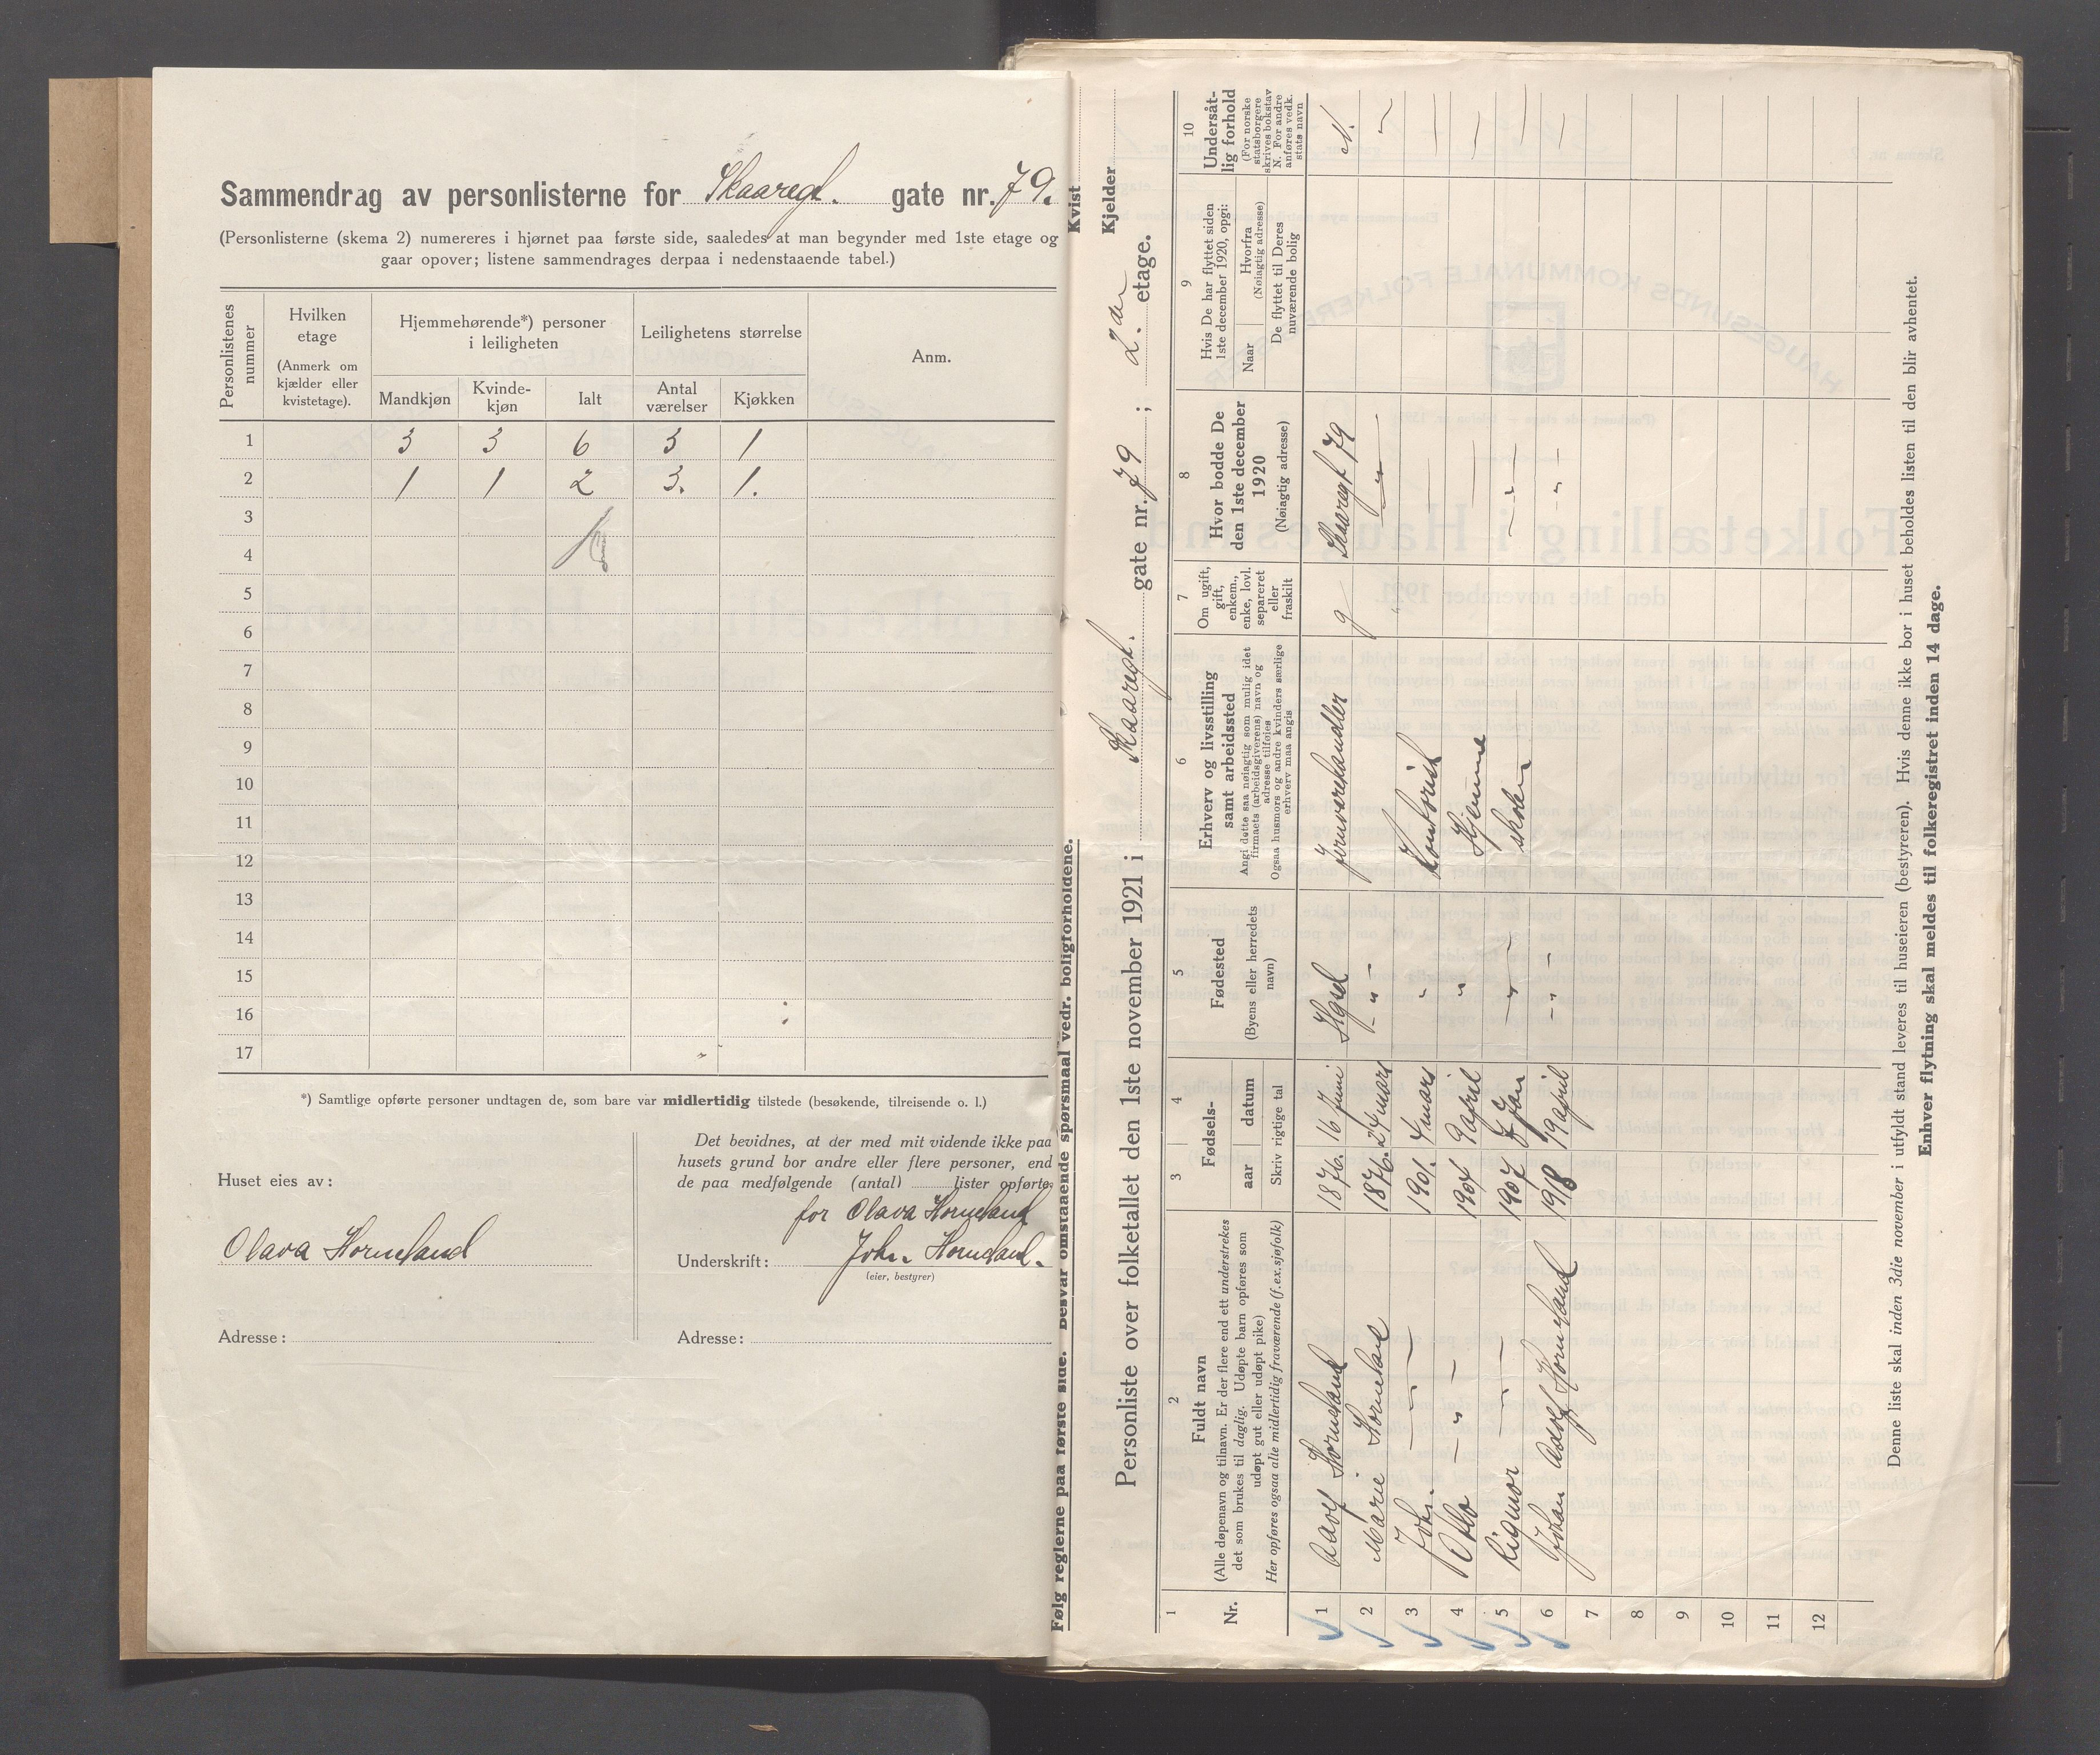 Sammendrag av personlisterne for Skaaregt. gate nr. 79.
(Personlisterne (skema 2) numereres i hjørnet paa første side, saaledes at man begynder med 1ste etage og
gaar opover; listene sammendrages derpaa i nedenstaaende tabel.)
Personlistenes nummer
Hvilken etage
(Anmerk om kjælder eller kvistetage).
Hjemmehørende*) personer i leiligheten
Leilighetens størrelse
Anm.
Mandkjøn Kvinde-kjøn Ialt Antal værelser Kjøkken
1 3 3 6 3 1
2 1 1 2 3. 1.
3
4
5
6
7
8
9
10
11
12
13
14
15
16
17
*) Samtlige opførte personer undtagen de, som bare var midlertidig tilstede (besøkende, tilreisende o. l.)
Huset eies av:
Olava Horneland
Adresse:
Det bevidnes, at der med mit vidende ikke paa
husets grund bor andre eller flere personer, end
de paa medfølgende (antal) lister opførte.
for Olava Horneland
Underskrift: John Horneland.
(eier, bestyrer)
Adresse:
Følg reglerne paa første side. Besvar omstaaende spørsmaal vedr. boligforholdene.
Kvist
Kjelder
Personliste over folketallet den 1ste november 1921 i Skaaregt. gate nr. 79 ; 2. etage.
1 Nr.
2 Fuldt navn
(Alle døpenavn og tilnavn. Er der flere end ett understrekes
det som brukes til daglig. Udøpte barn opføres som
udøpt gut eller udøpt pike)
Her opføres ogsaa alle midlertidig fraværende (f. ex. sjøfolk)
3 4 Fødsels-
aar datum
Skriv rigtige tal
5 Fødested
(Byens eller herredets navn)
6 Erhverv og livsstilling
samt arbeidssted
Angi dette saa nøiagtig som mulig idet
firmaets (arbeidsgiverens) navn og
adresse tilføies
Ogsaa husmors og andre kvinders særlige
erhverv maa angis
7 Om ugift,
gift,
enkem.,
enke, lovl.
separeret
eller
fraskilt
8 Hvor bodde De
den 1ste december
1920
(Nøiagtig adresse)
9 Hvis De har flyttet siden
1ste december 1920, opgi:
Naar
Hvorfra
(Nøiagtig adresse)
De flyttet til Deres
nuværende bolig
10 Undersåt-
lig forhold
(For norske
statsborgere
skrives bokstav
N. For andre
anføres vedk.
stats navn
1 Horneland 1876. 16 Juni Hgsd Jernvarehandler g Skaaregt 79 N.
2 Marie Horneland 1876. 24 mars - " - " "
3 John — " — 1901. 4 mars " Kontorist —
4 Otto - " - 1904 9 april " Hjemme —
5 Rigmor — " — 1907 7 Jan — " — skolen — " —
6 Johan Adolf Horneland 1918 19 april - " - - " - —
7
8
9
10
11
12
Denne liste skal inden 3die november i utfyldt stand leveres til huseieren (bestyreren). Hvis denne ikke bor i huset beholdes listen til den blir avhentet.
Enhver flytning skal meldes til folkeregistret inden 14 dage.